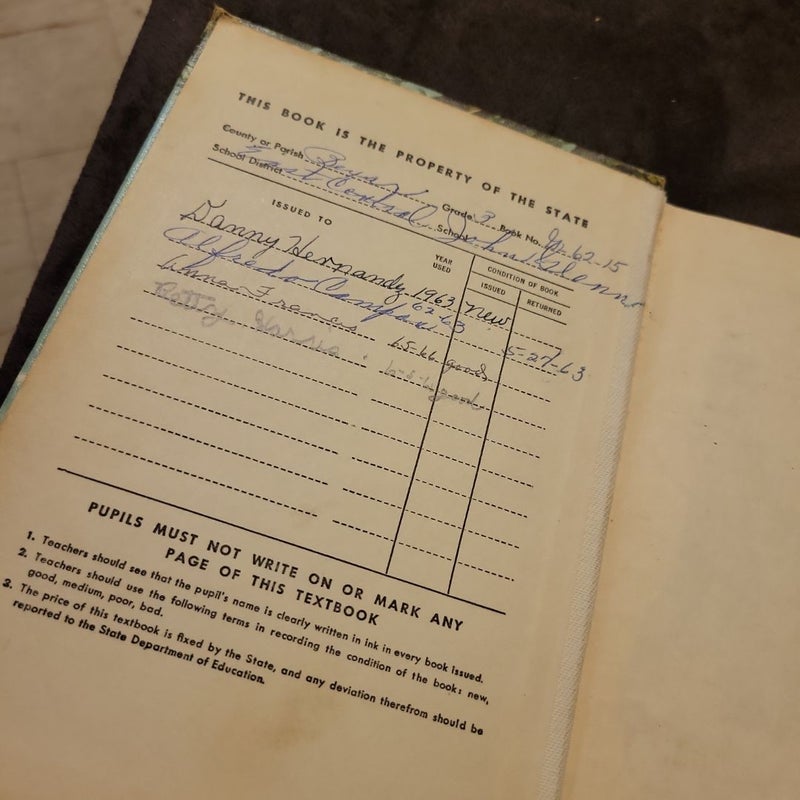 THIS BOOK IS THE PROPERTY OF THE STATE
County or Parish Grade 3 Book No. 62-15
School District East Central School John Glenn
ISSUED TO YEAR USED CONDITION OF BOOK
ISSUED RETURNED
Danny Hernandz 1963 New
Alfredo 62-63 5-27-63
Anna Francis 65-66 good
Betty good
PUPILS MUST NOT WRITE ON OR MARK ANY
PAGE OF THIS TEXTBOOK
1. Teachers should see that the pupil's name is clearly written in ink in every book issued.
2. Teachers should use the following terms in recording the condition of the book: new,
good, medium, poor, bad.
3. The price of this textbook is fixed by the State, and any deviation therefrom should be
reported to the State Department of Education.